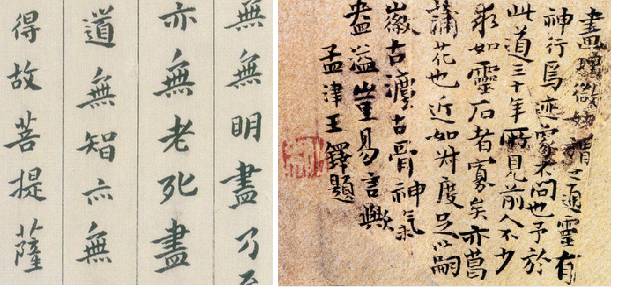 無無明盡乃至
亦無老死盡
道無智亦無
得故菩提薩
畫妙之通靈有
神行焉迹象不問也予於
此道三十年所見前人不少
求如靈石者寡矣亦菖
蒲花也近如度足以嗣
徽古澹古骨神氣
盎溢豈易言歟
孟津王鐸題